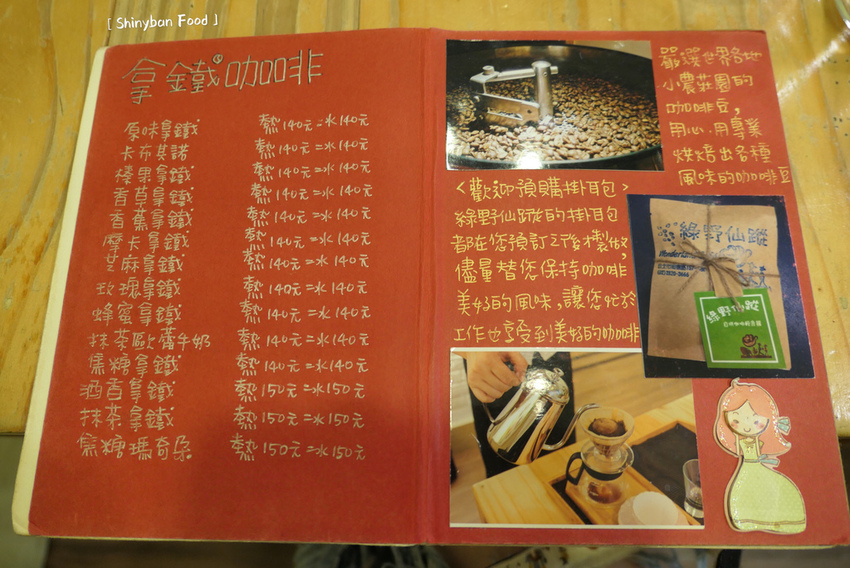 [ Shinyban Food ]
拿鐵咖啡
原味拿鐵 熱140元=冰140元
卡布其諾 熱140元=冰140元
榛果拿鐵 熱140元=冰140元
香草拿鐵 熱140元=冰140元
香蕉拿鐵 熱140元=冰140元
摩卡拿鐵 熱140元=冰140元
芝麻拿鐵 熱140元=冰140元
玫瑰拿鐵 熱140元=冰140元
蜂蜜拿鐵 熱140元=冰140元
抹茶歐蕾牛奶 熱140元=冰140元
焦糖拿鐵 熱140元=冰140元
酒香拿鐵 熱150元=冰150元
抹茶拿鐵 熱150元=冰150元
焦糖瑪奇朵 熱150元=冰150元
嚴選世界各地
小農莊園的
咖啡豆,
用心、用專業
烘焙出各種
風味的咖啡豆
<歡迎預購掛耳包>
綠野仙蹤的掛耳包
都在您預訂之後製做,
儘量替您保持咖啡
美好的風味,讓您忙於
工作也享受到美好的咖啡
綠野仙蹤
綠野仙蹤